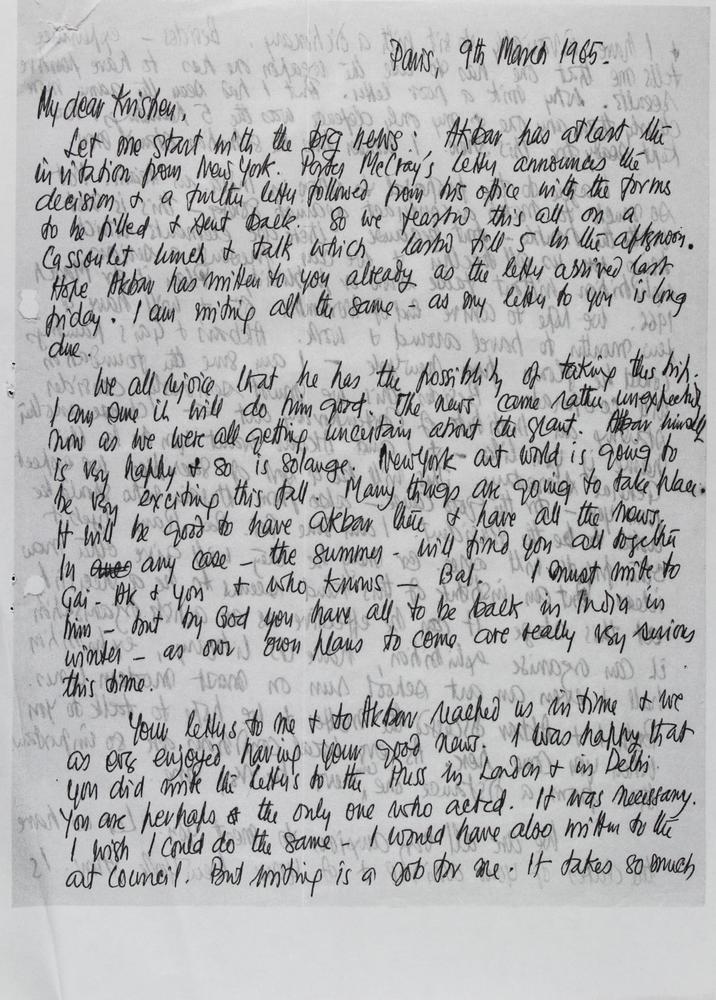 Paris, 9th March 1965.
My dear Krishen,
Let me start with the big news: Akbar has at last the
invitation from New York. Porter McCray's letter announces the
decision & a further letter followed from his office with the forms
to be filled & sent back. So we feasted this all on a
Cassoulet lunch & talk which lasted till 5 in the afternoon.
Hope Akbar has written to you already as the letter arrived last
friday. I am writing all the same - as my letter to you is long
due.
We all rejoice that he has the possibility of taking this trip.
I am sure it will do him good. The news came rather unexpectedly
now as we were all getting uncertain about the grant. Akbar himself
is very happy & so is Solange. New York art world is going to
be very exciting this fall. Many things are going to take place.
It will be good to have Akbar there & have all the news.
In any case - the summer - will find you all together
Gai - Ak & you & who knows - Bal. I must write to
him - but by God you have all to be back in India in
winter - as our own plans to come are really very serious
this time.
Your letters to me & to Akbar reached us in time & we
as ever enjoyed having your good news. I was happy that
you did write the letters to the Press in London & in Delhi.
You are perhaps the only one who acted. It was necessary.
I wish I could do the same - I would have also written to the
art Council. But writing is a job for me. It takes so much